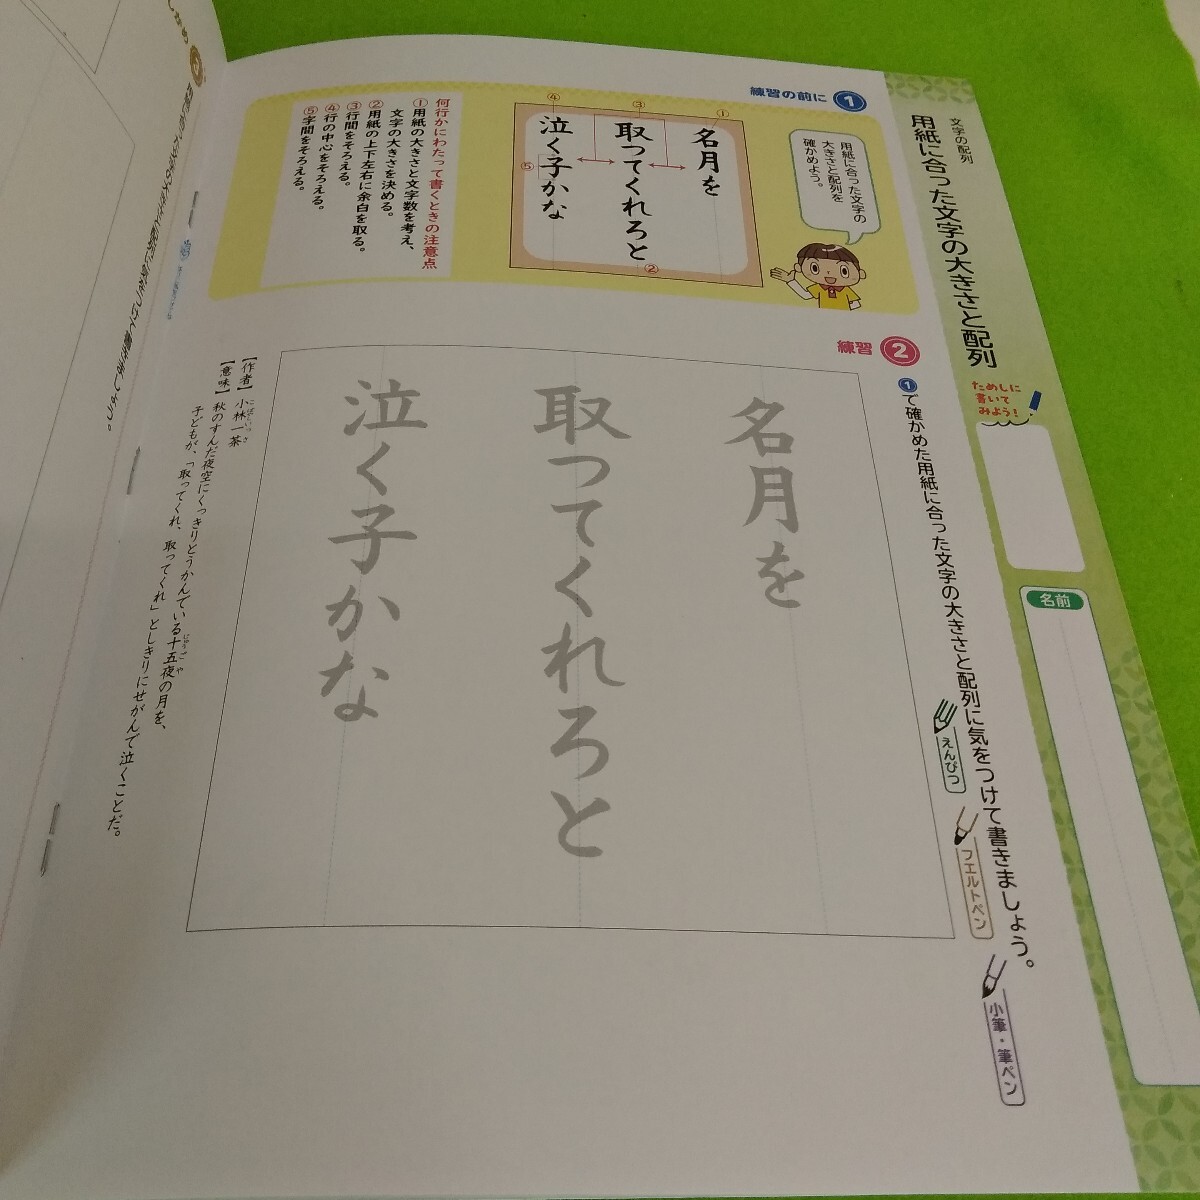 文字の配列
用紙に合った文字の大きさと配列
ためしに
書いて
みよう!
名前
1 練習の前に
用紙に合った文字の
大きさと配列を
確かめよう。
①
②
③
④
⑤
名月を
取ってくれろと
泣く子かな
何行かにわたって書くときの注意点
①用紙の大きさと文字数を考え、
文字の大きさを決める。
②用紙の上下左右に余白を取る。
③行間をそろえる。
④行の中心をそろえる。
⑤字間をそろえる。
2 練習
1で確かめた用紙に合った文字の大きさと配列に気をつけて書きましょう。
えんぴつ
フエルトペン
小筆・筆ペン
名月を
取ってくれろと
泣く子かな
【作者】小林一茶
こばやしいっさ
【意味】秋のすんだ夜空にくっきりとうかんでいる十五夜の月を、
じゅうごや
子どもが、「取ってくれ、取ってくれ」としきりにせがんで泣くことだ。